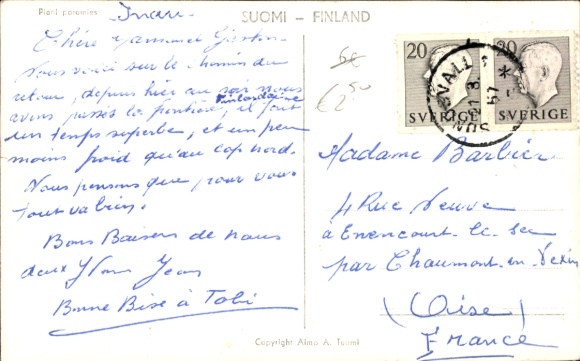 Pieni poromies
SUOMI - FINLAND
Inari
Chère Mammet Gaston
Nous voici sur le chemin du
retour, depuis hier au soir nous
avons passés la frontière finlandaise, il fait
un temps superbe, et un peu
moins froid qu'au cap nord.
Nous pensons que pour vous
tout va bien.
Bons Baisers de nous
deux Yvon Jean
Bonne Bise à Tobi
6€
€2,50
20
SVERIGE
20
SVERIGE
SUNDSVALL 1
21 8 57
Madame Barbier
4 Rue Neuve
à Enencourt-le-Sec
par Chaumont-en-Vexin
(Oise)
France
Copyright Almo A. Tuomi